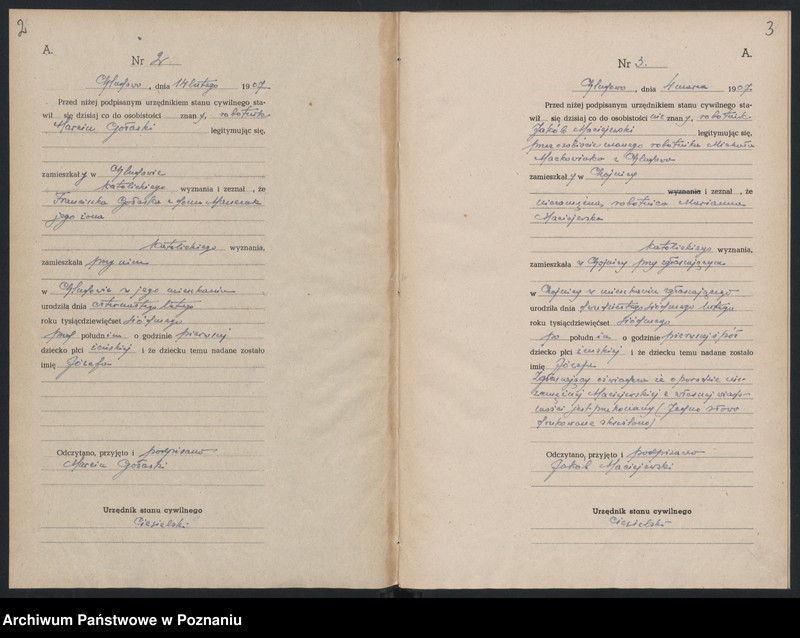 2
A.
Nr 2.
, dnia 14 lutego 1907
Przed niżej podpisanym urzędnikiem stanu cywilnego sta-
wił się dzisiaj co do osobistości znany, robotnik
Marcin Góraski legitymując się,
zamieszkały w
katolickiego wyznania i zeznał , że
Franciszka Góraska z domu
jego żona
katolickiego wyznania,
zamieszkała przy nim
w w jego mieszkaniu
urodziła dnia czternastego lutego
roku tysiącdziewięćset siódmego
przed południem o godzinie pierwszej
dziecko płci żeńskiej i że dziecku temu nadane zostało
imię Józefa
Odczytano, przyjęto i podpisano
Marcin Góraski
Urzędnik stanu cywilnego
Ciesielski
3
A.
Nr 3.
, dnia 4 marca 1907
Przed niżej podpisanym urzędnikiem stanu cywilnego sta-
wił się dzisiaj co do osobistości nie znany, robotnik
Jakób Maciejewski legitymując się,
przez osobiście znanego robotnika Michała
Maćkowiaka z
zamieszkały w Chojnicy
wyznania i zeznał , że
niezamężna robotnica Marianna
Maciejewska
katolickiego wyznania,
zamieszkała w Chojnicy przy zgłaszającym
w Chojnicy w mieszkaniu zgłaszającego
urodziła dnia dwudziestego siódmego lutego
roku tysiącdziewięćset siódmego
po południu o godzinie pierwszej i pół
dziecko płci żeńskiej i że dziecku temu nadane zostało
imię Józefa
Zgłaszający oświadcza że o porodzie nie-
zamężnej Maciejewskiej z własnej wiado-
mości jest przekonany (Jedno słowo
drukowane skreślono)
Odczytano, przyjęto i podpisano
Jakób Maciejewski
Urzędnik stanu cywilnego
Ciesielski
Archiwum Państwowe w Poznaniu